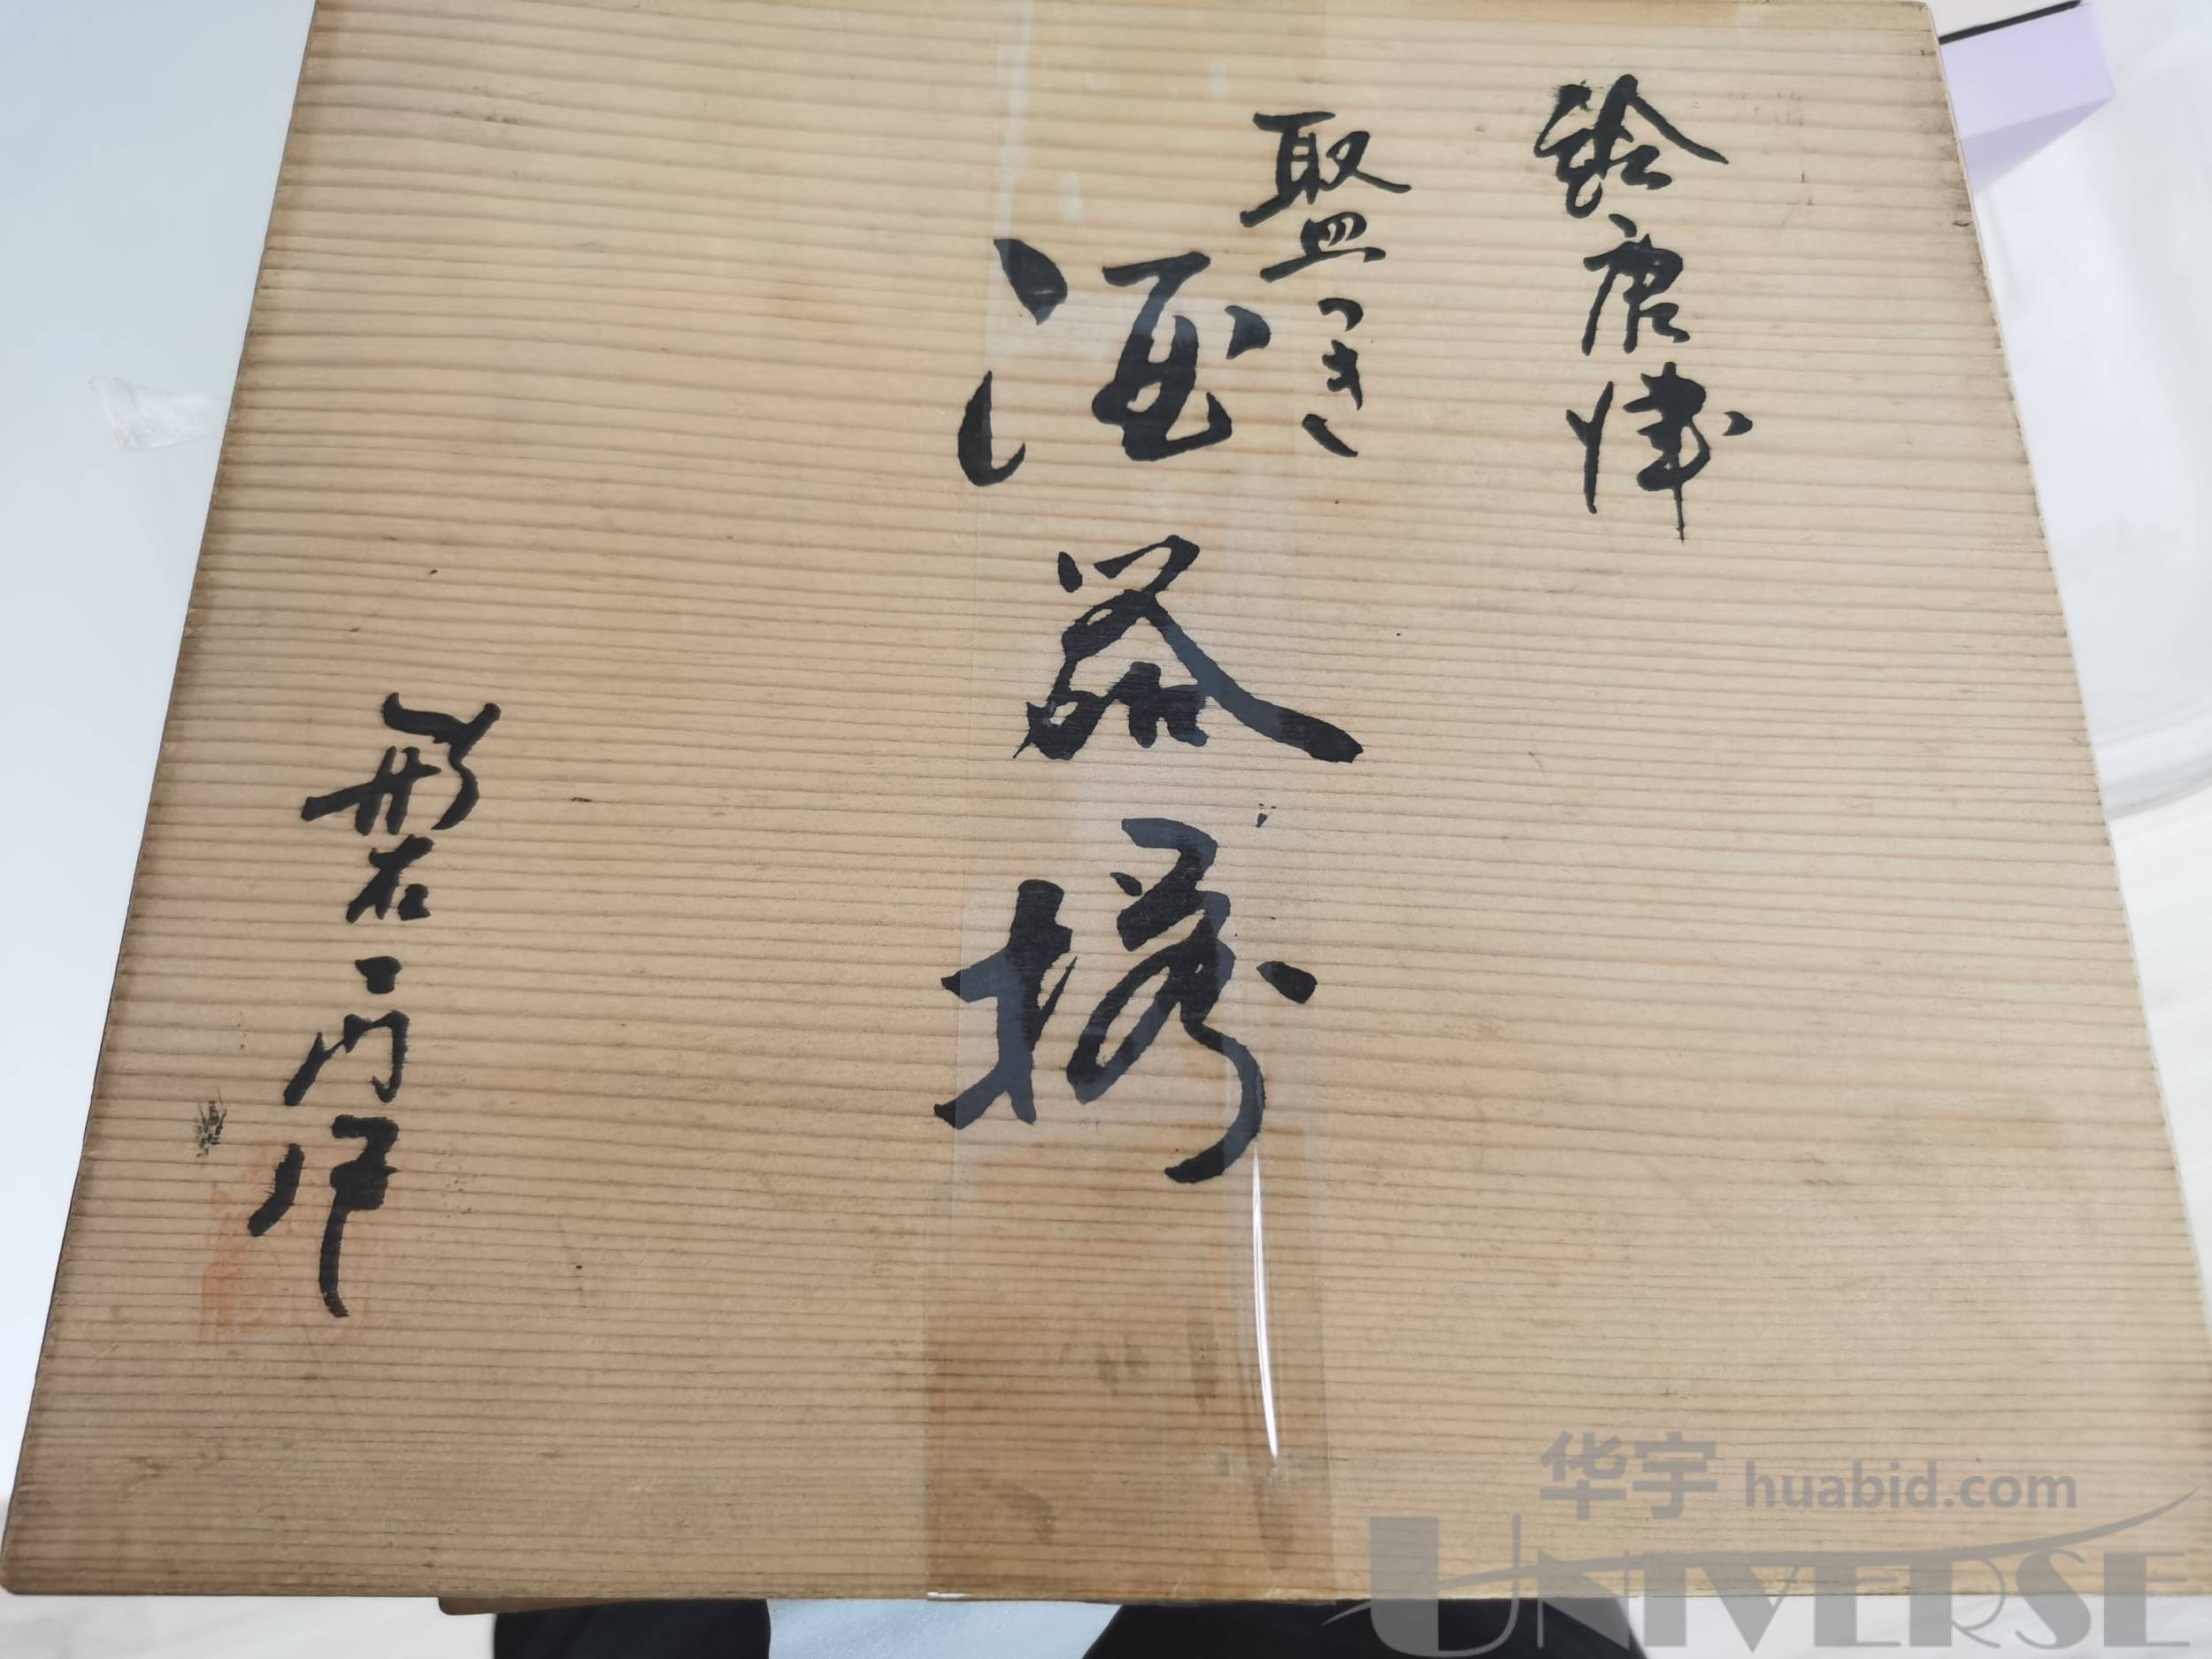 絵唐津
取皿つき
酒器揃
華右ヱ门作
华宇 huabid.com
UNIVERSE